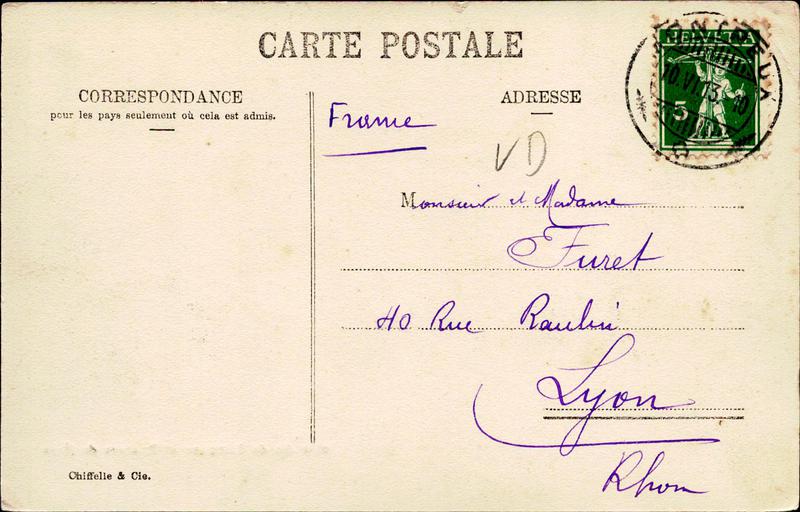 CARTE POSTALE
CORRESPONDANCE
pour les pays seulement où cela est admis.
ADRESSE
HELVETIA
5
10.VI.13
France
VD
Monsieur et Madame
Furet
40 Rue Raulin
Lyon
Rhone
Chiffelle & Cie.